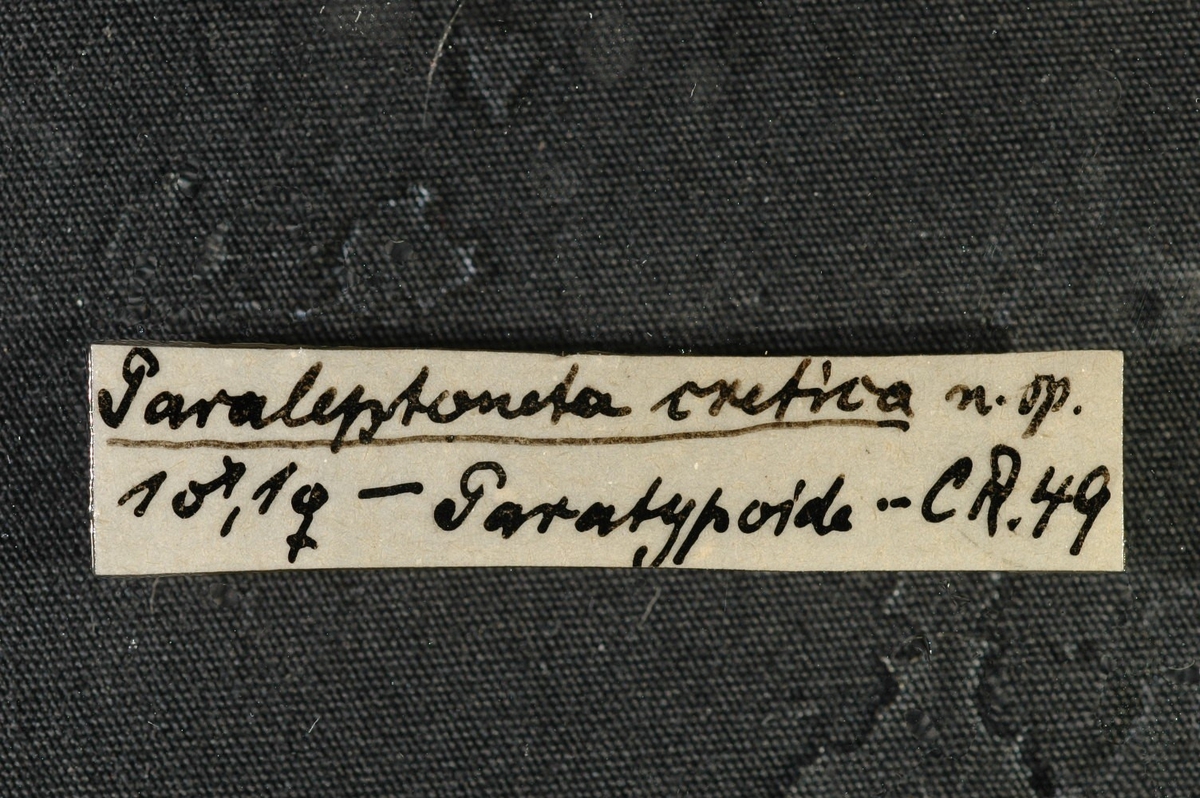 Paraleptoneta cretica n. sp.
1♂, 1♀ – Paratypoide – CR. 49